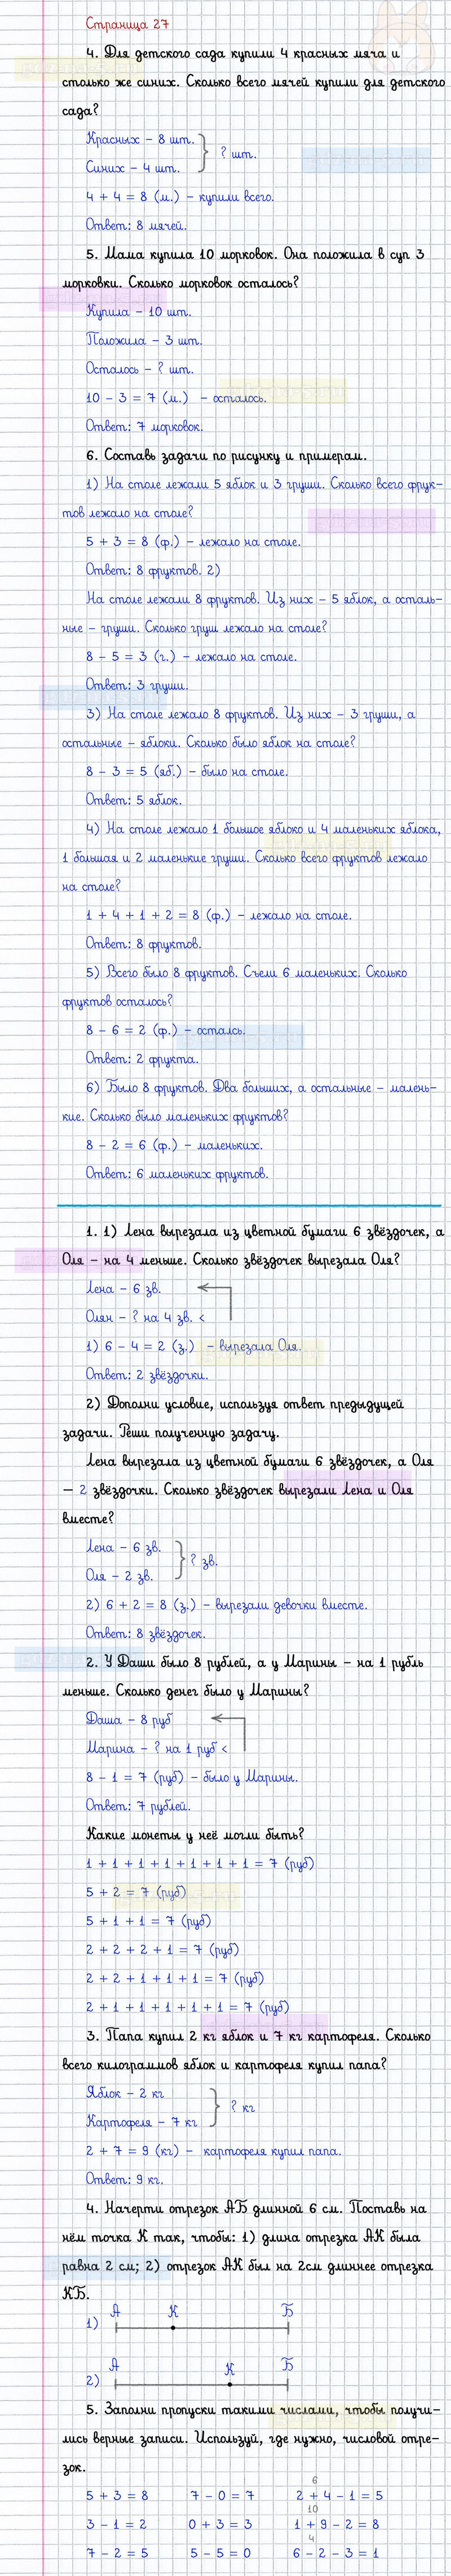 Страница 27
4. Для детского сада купили 4 красных мяча и
столько же синих. Сколько всего мячей купили для детского
сада?
Красных – 8 шт.
? шт.
Синих – 4 шт.
4 + 4 = 8 (м.) – купили всего.
Ответ: 8 мячей.
5. Мама купила 10 морковок. Она положила в суп 3
морковки. Сколько морковок осталось?
Купила – 10 шт.
Положила – 3 шт.
Осталось – ? шт.
10 – 3 = 7 (м.) – осталось.
Ответ: 7 морковок.
6. Составь задачи по рисунку и примерам.
1) На столе лежали 5 яблок и 3 груши. Сколько всего фрук-
тов лежало на столе?
5 + 3 = 8 (ф.) – лежало на столе.
Ответ: 8 фруктов. 2)
На столе лежали 8 фруктов. Из них – 5 яблок, а осталь-
ные – груши. Сколько груш лежало на столе?
8 – 5 = 3 (г.) – лежало на столе.
Ответ: 3 груши.
3) На столе лежало 8 фруктов. Из них – 3 груши, а
остальные – яблоки. Сколько было яблок на столе?
8 – 3 = 5 (яб.) – было на столе.
Ответ: 5 яблок.
4) На столе лежало 1 большое яблоко и 4 маленьких яблока,
1 большая и 2 маленькие груши. Сколько всего фруктов лежало
на столе?
1 + 4 + 1 + 2 = 8 (ф.) – лежало на столе.
Ответ: 8 фруктов.
5) Всего было 8 фруктов. Съели 6 маленьких. Сколько
фруктов осталось?
8 – 6 = 2 (ф.) – осталсь.
Ответ: 2 фрукта.
6) Было 8 фруктов. Два больших, а остальные – малень-
кие. Сколько было маленьких фруктов?
8 – 2 = 6 (ф.) – маленьких.
Ответ: 6 маленьких фруктов.
1. 1) Лена вырезала из цветной бумаги 6 звёздочек, а
Оля – на 4 меньше. Сколько звёздочек вырезала Оля?
Лена – 6 зв.
Олян – ? на 4 зв. <
1) 6 – 4 = 2 (з.) – вырезала Оля.
Ответ: 2 звёздочки.
2) Дополни условие, используя ответ предыдущей
задачи. Реши полученную задачу.
Лена вырезала из цветной бумаги 6 звёздочек, а Оля
– 2 звёздочки. Сколько звёздочек вырезали Лена и Оля
вместе?
Лена – 6 зв.
? зв.
Оля – 2 зв.
2) 6 + 2 = 8 (з.) – вырезали девочки вместе.
Ответ: 8 звёздочек.
2. У Даши было 8 рублей, а у Марины – на 1 рубль
меньше. Сколько денег было у Марины?
Даша – 8 руб
Марина – ? на 1 руб <
8 – 1 = 7 (руб) – было у Марины.
Ответ: 7 рублей.
Какие монеты у неё могли быть?
1 + 1 + 1 + 1 + 1 + 1 + 1 = 7 (руб)
5 + 2 = 7 (руб)
5 + 1 + 1 = 7 (руб)
2 + 2 + 2 + 1 = 7 (руб)
2 + 2 + 1 + 1 + 1 = 7 (руб)
2 + 1 + 1 + 1 + 1 + 1 = 7 (руб)
3. Папа купил 2 кг яблок и 7 кг картофеля. Сколько
всего килограммов яблок и картофеля купил папа?
Яблок – 2 кг
? кг
Картофеля – 7 кг
2 + 7 = 9 (кг) – картофеля купил папа.
Ответ: 9 кг.
4. Начерти отрезок АБ длинной 6 см. Поставь на
нём точка К так, чтобы: 1) длина отрезка АК была
равна 2 см; 2) отрезок АК был на 2см длиннее отрезка
КБ.
А К Б
1)
А К Б
2)
5. Заполни пропуски такими числами, чтобы получи-
лись верные записи. Используй, где нужно, числовой отре-
зок.
6
5 + 3 = 8 7 – 0 = 7 2 + 4 – 1 = 5
10
3 – 1 = 2 0 + 3 = 3 1 + 9 – 2 = 8
4
7 – 2 = 5 5 – 5 = 0 6 – 2 – 3 = 1